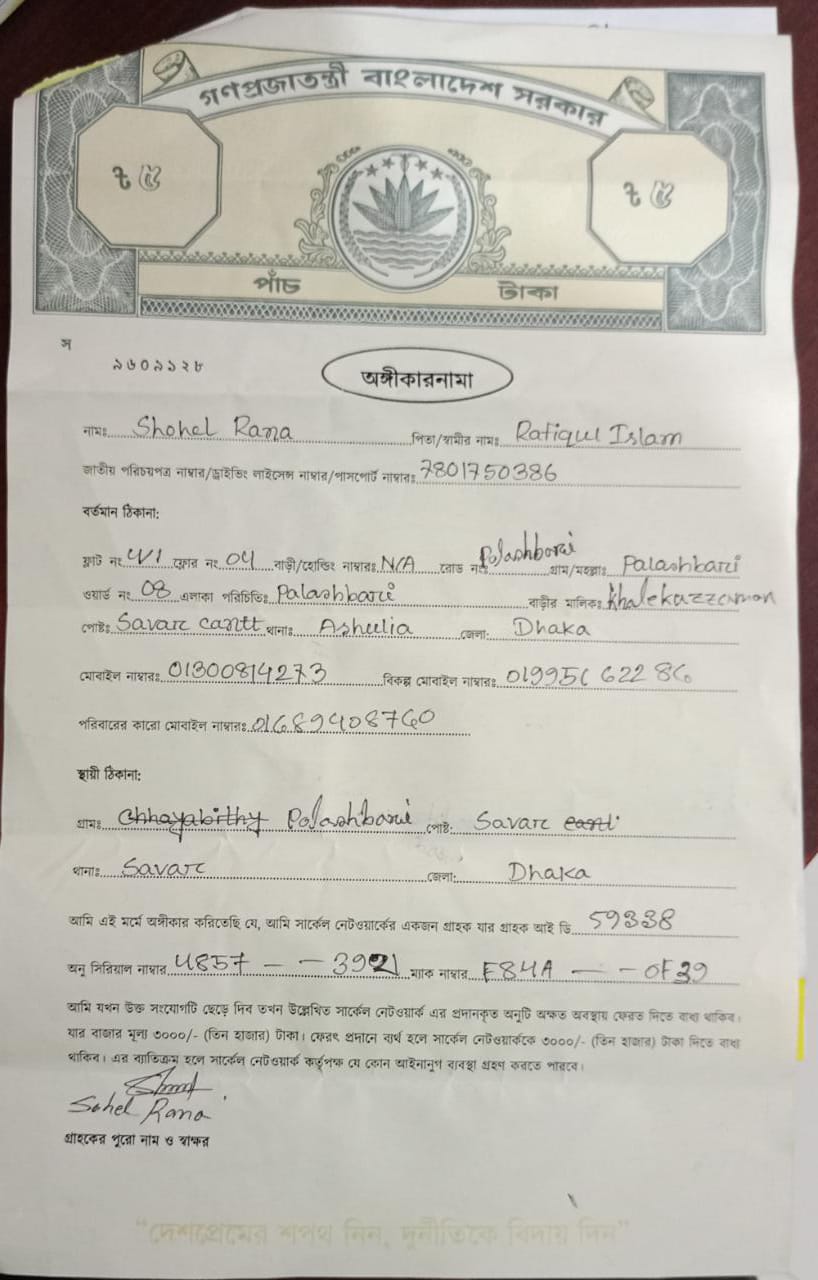 গণপ্রজাতন্ত্রী বাংলাদেশ সরকার
৳ ৫ ৳ ৫
পাঁচ টাকা
স
৯৬০৯১২৮
অঙ্গীকারনামা
নামঃ Shohel Rana পিতা/স্বামীর নামঃ Rafiqul Islam
জাতীয় পরিচয়পত্র নাম্বার/ড্রাইভিং লাইসেন্স নাম্বার/পাসপোর্ট নাম্বারঃ 7801750386
বর্তমান ঠিকানা:
ফ্লাট নং 4/1 ফ্লোর নং 04 বাড়ী/হোল্ডিং নাম্বারঃ N/A রোড নংঃ Palashbari গ্রাম/মহল্লাঃ Palashbari
ওয়ার্ড নং 08 এলাকা পরিচিতিঃ Palashbari বাড়ীর মালিকঃ Khalekuzzaman
পোষ্টঃ Savar cantt থানাঃ Ashulia জেলা: Dhaka
মোবাইল নাম্বারঃ 01300814273 বিকল্প মোবাইল নাম্বারঃ
পরিবারের কারো মোবাইল নাম্বারঃ 01689408760
স্থায়ী ঠিকানা:
গ্রামঃ Chhayabithy Palashbari পোষ্ট: Savar cantt
থানাঃ Savar জেলা: Dhaka
আমি এই মর্মে অঙ্গীকার করিতেছি যে, আমি সার্কেল নেটওয়ার্কের একজন গ্রাহক যার গ্রাহক আই ডি 59338
অনু সিরিয়াল নাম্বার 4857 - - 3921 ম্যাক নাম্বার E84A - - 0F39
আমি যখন উক্ত সংযোগটি ছেড়ে দিব তখন উল্লেখিত সার্কেল নেটওয়ার্ক এর প্রদানকৃত অনুটি অক্ষত অবস্থায় ফেরত দিতে বাধ্য থাকিব।
যার বাজার মূল্য ৩০০০/- (তিন হাজার) টাকা। ফেরৎ প্রদানে ব্যর্থ হলে সার্কেল নেটওয়ার্ককে ৩০০০/- (তিন হাজার) টাকা দিতে বাধ্য
থাকিব। এর ব্যতিক্রম হলে সার্কেল নেটওয়ার্ক কর্তৃপক্ষ যে কোন আইনানুগ ব্যবস্থা গ্রহণ করতে পারবে।
Sohel Rana
গ্রাহকের পুরো নাম ও স্বাক্ষর
“দেশপ্রেমের শপথ নিন, দুর্নীতিকে বিদায় দিন”